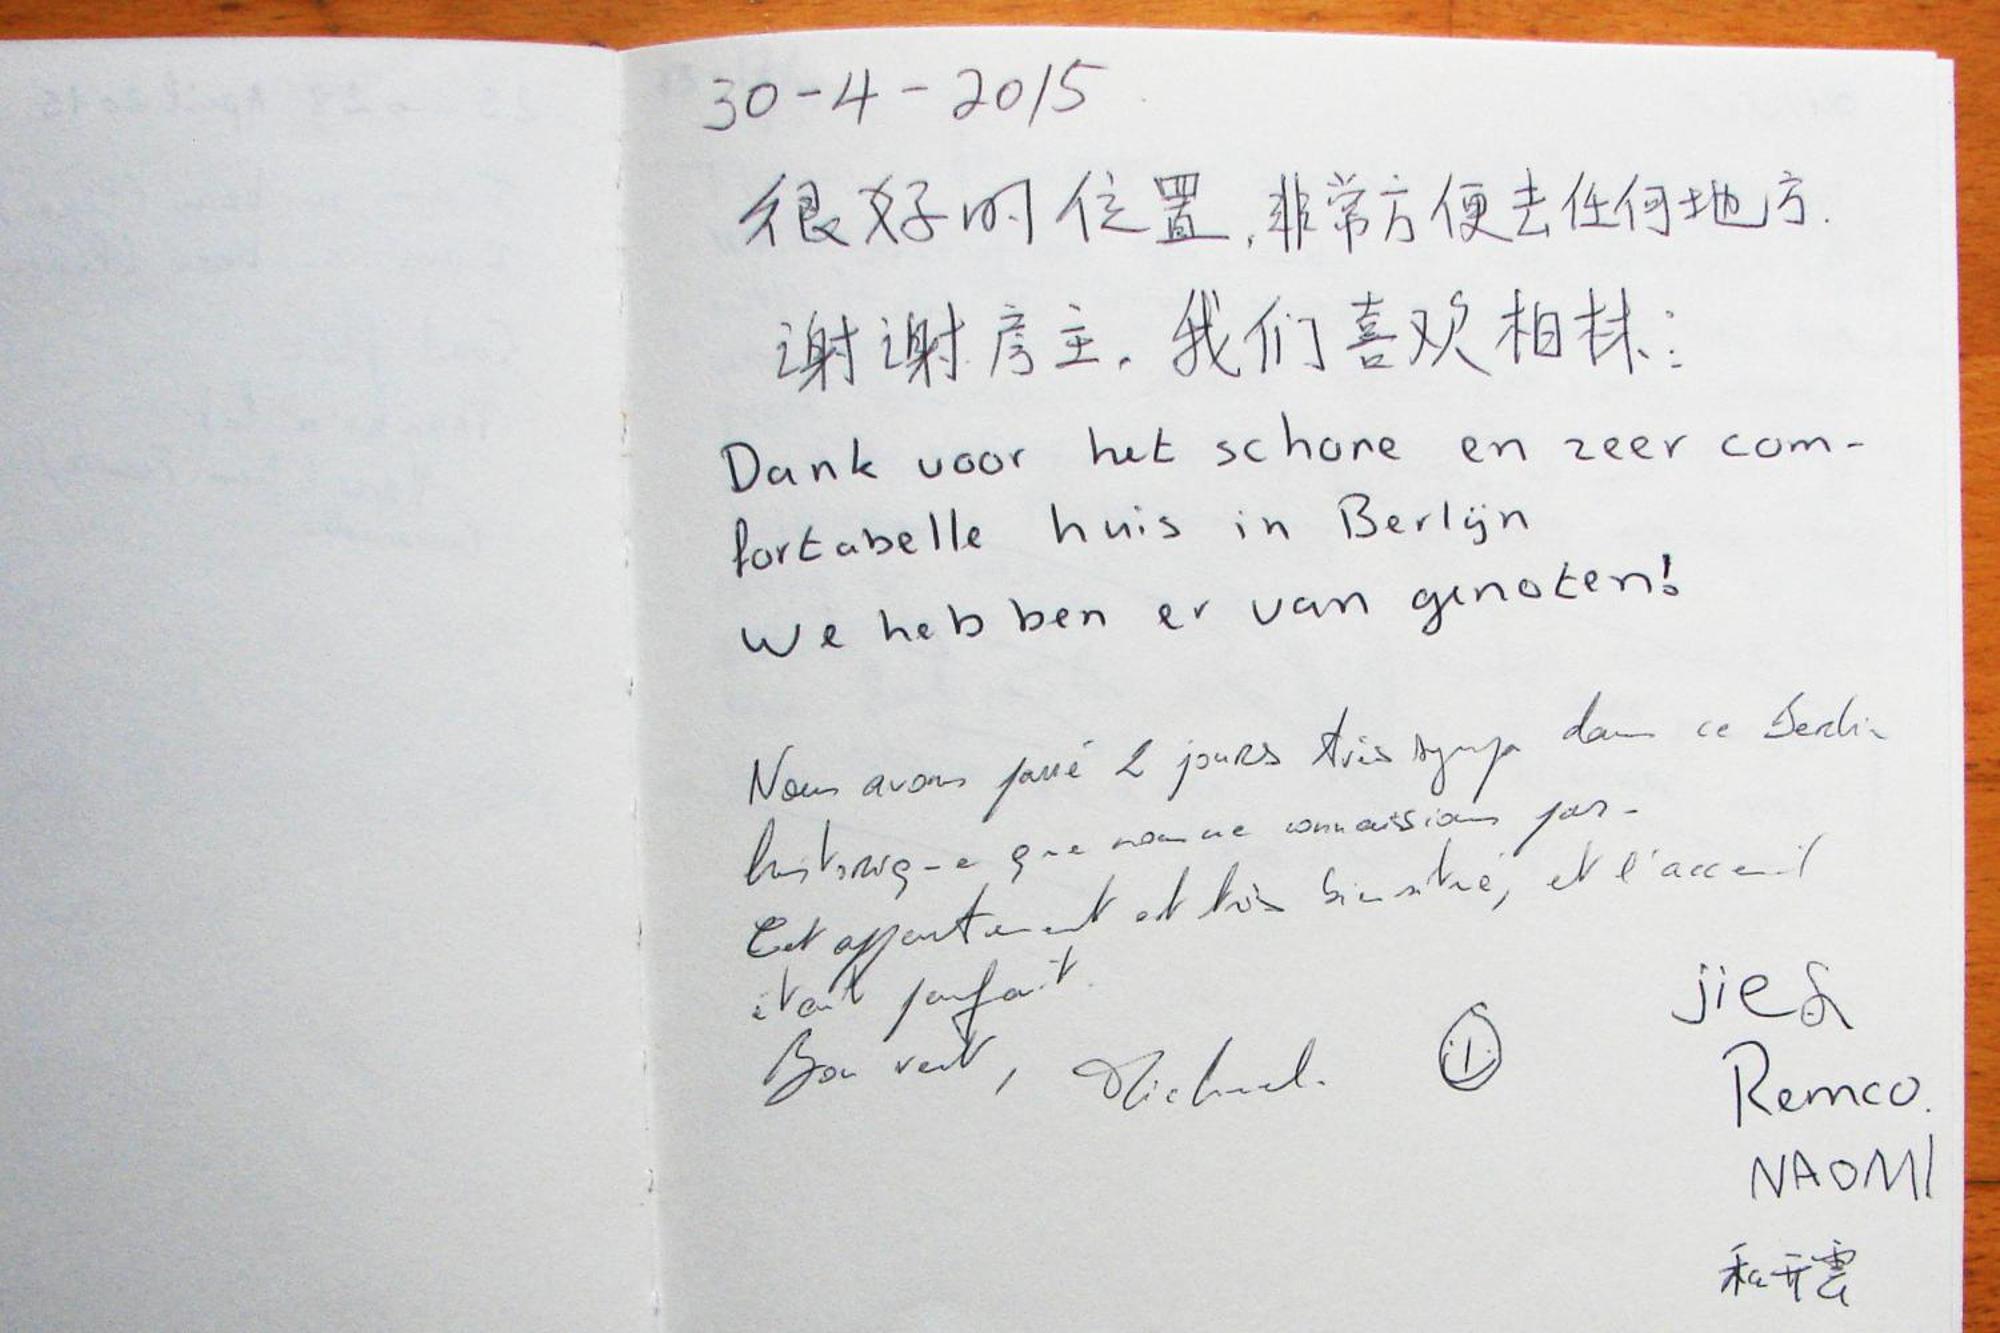 30-4-2015
很好的位置,非常方便去任何地方.
谢谢房主.我们喜欢柏林:
Dank voor het schone en zeer com-
fortabelle huis in Berlijn
We hebben er van genoten!
Nous avons passé 2 jours très sympa dans ce Berlin
historique que nous ne connaissions pas.
Cet appartement est très bien situé, et l'acceuil
était parfait.
Bon vent, Michael.
jief
Remco.
NAOMI